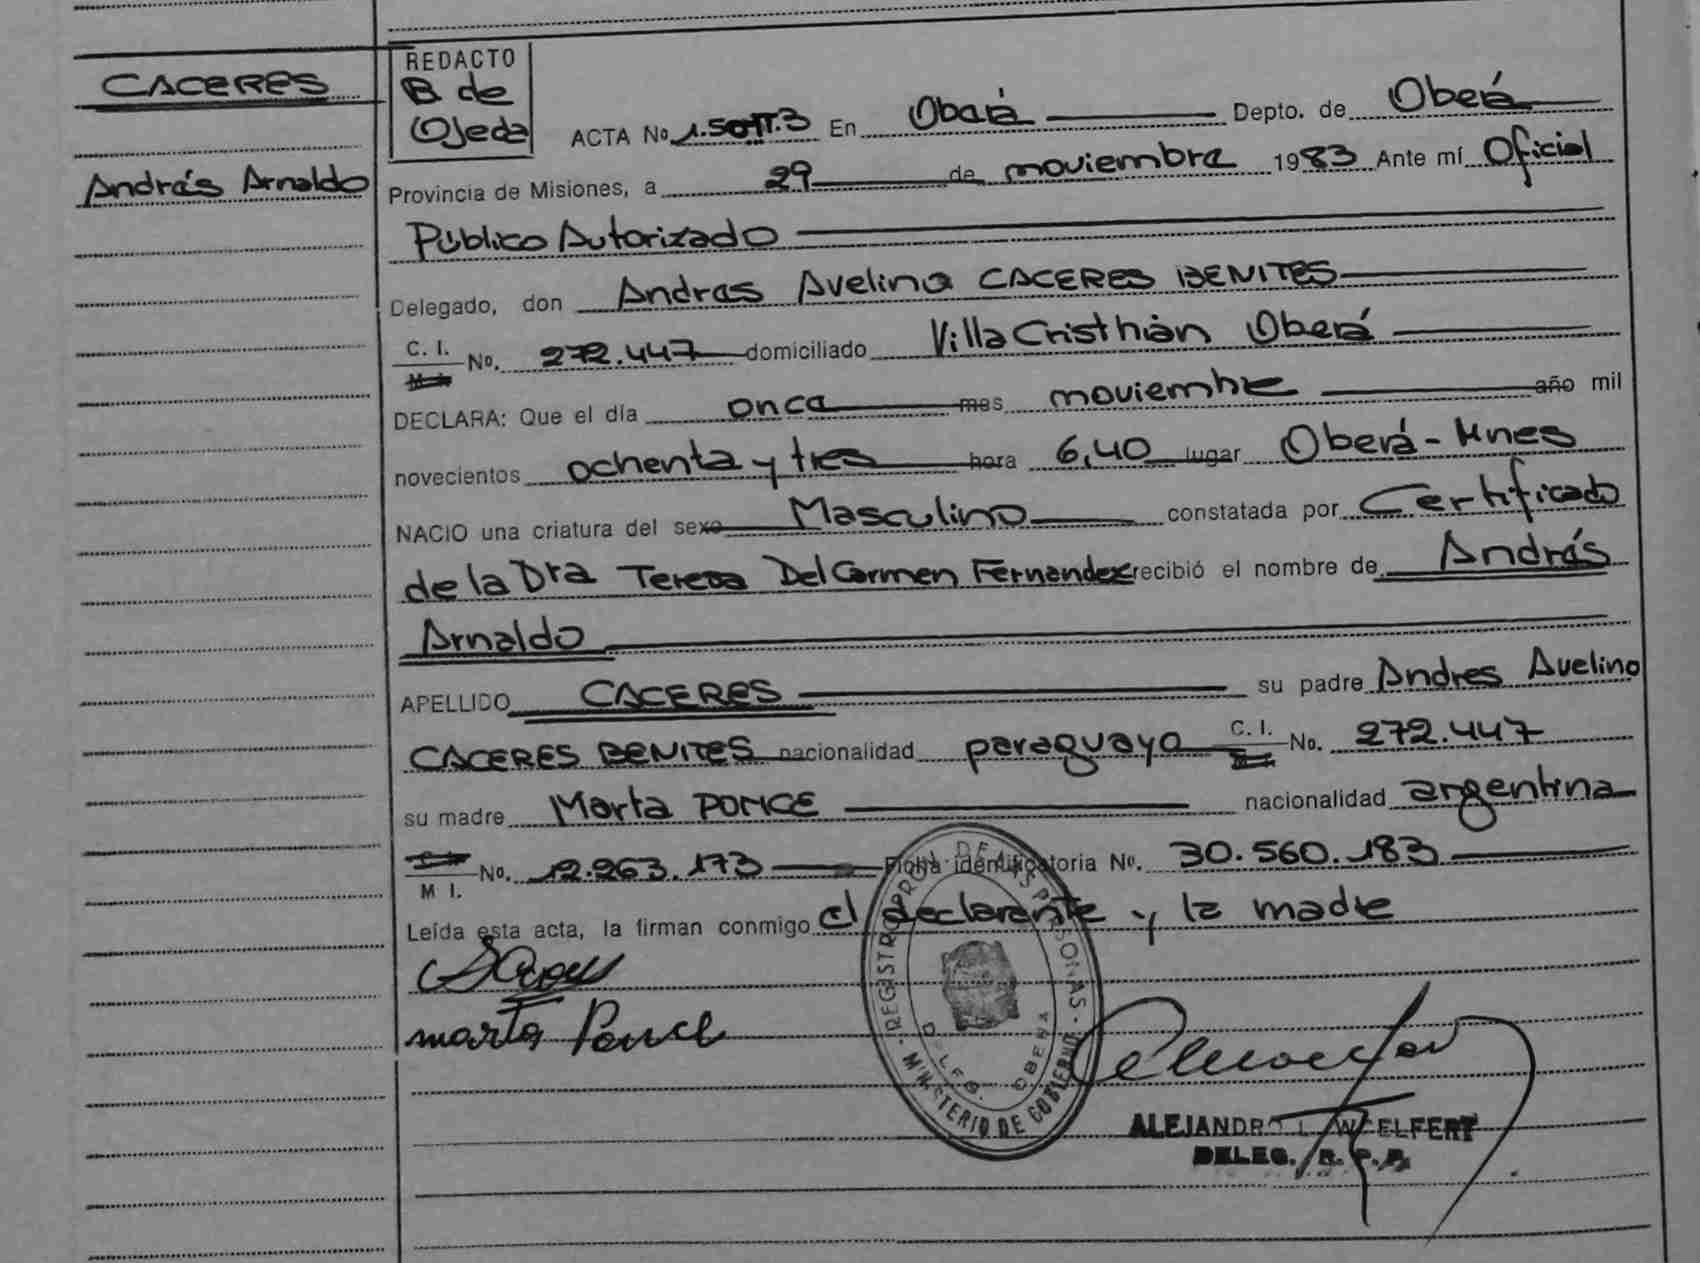 CACERES
Andrés Arnaldo
REDACTO
B de
Ojeda
ACTA No En Oberá Depto. de Oberá
Provincia de Misiones, a 29 de noviembre 1983 Ante mí Oficial
Público Autorizado
Delegado, don Andres Avelino CACERES BENITES
C. I. No. 272.447 domiciliado Villa Cristhián Oberá
DECLARA: Que el día once mes noviembre año mil
novecientos ochenta y tres hora 6,40 lugar Oberá-Mnes
NACIO una criatura del sexo Masculino constatada por Certificado
de la Dra Teresa Del Carmen Fernandez recibió el nombre de Andrés
Arnaldo
APELLIDO CACERES su padre Andres Avelino
CACERES BENITES nacionalidad paraguayo C. I. No. 272.447
su madre Marta PONCE nacionalidad argentina
M I. No. 12.263.173 Ficha identificatoria No. 30.560.183
Leída esta acta, la firman conmigo el declarante y la madre
marta Ponce
REGISTRO PROV. DE LAS PERSONAS
MINISTERIO DE GOBIERNO
DELEG. OBERA
ALEJANDRO L. WELFERT
DELEG. R. P. P.